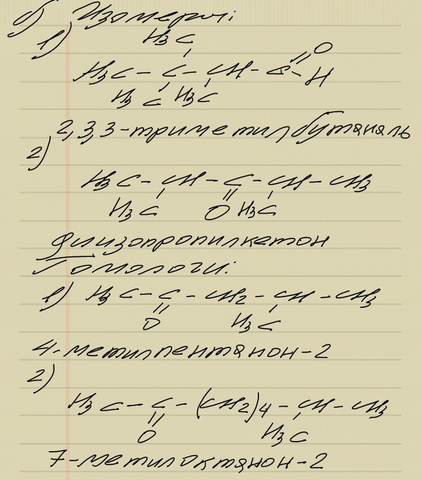 б) Изомеры:
1)
H₃C
H₃C – C – CH – C = O – H
H₃C H₃C
2,3,3-триметилбутаналь
2)
H₃C – CH – C – CH – CH₃
H₃C O H₃C
Диизопропилкетон
Гомологи:
1) H₃C – C – CH₂ – CH – CH₃
O H₃C
4-метилпентанон-2
2)
H₃C – C – (CH₂)₄ – CH – CH₃
O H₃C
7-метилоктанон-2